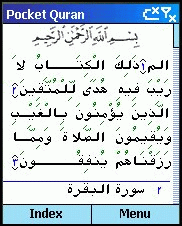 Pocket Quran
بِسْمِ اللَّهِ الرَّحْمَٰنِ الرَّحِيمِ
الم ۝١ ذَلِكَ الْكِتَابُ لاَ
رَيْبَ فِيهِ هُدًى لِّلْمُتَّقِينَ ۝٢
الَّذِينَ يُؤْمِنُونَ بِالْغَيْبِ
وَيُقِيمُونَ الصَّلاةَ وَمِمَّا
رَزَقْنَاهُمْ يُنفِقُونَ ۝٣
٢ سورة البقرة
Index Menu